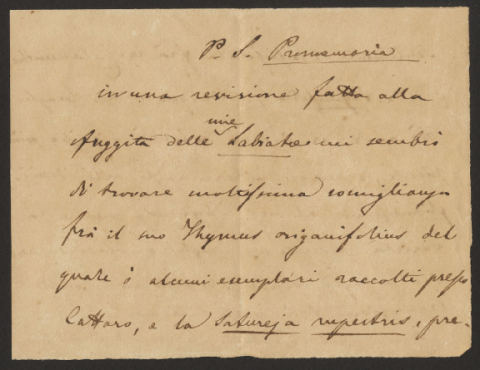 P. S. Promemoria
in una revisione fatta alla
fuggita delle mie Labiatae mi sembrò
di trovare moltissima somiglianza
frà il suo Thymus origanifolius del
quale ò alcuni esemplari raccolti presso
Cattaro, e la Satureja rupestris, pre-